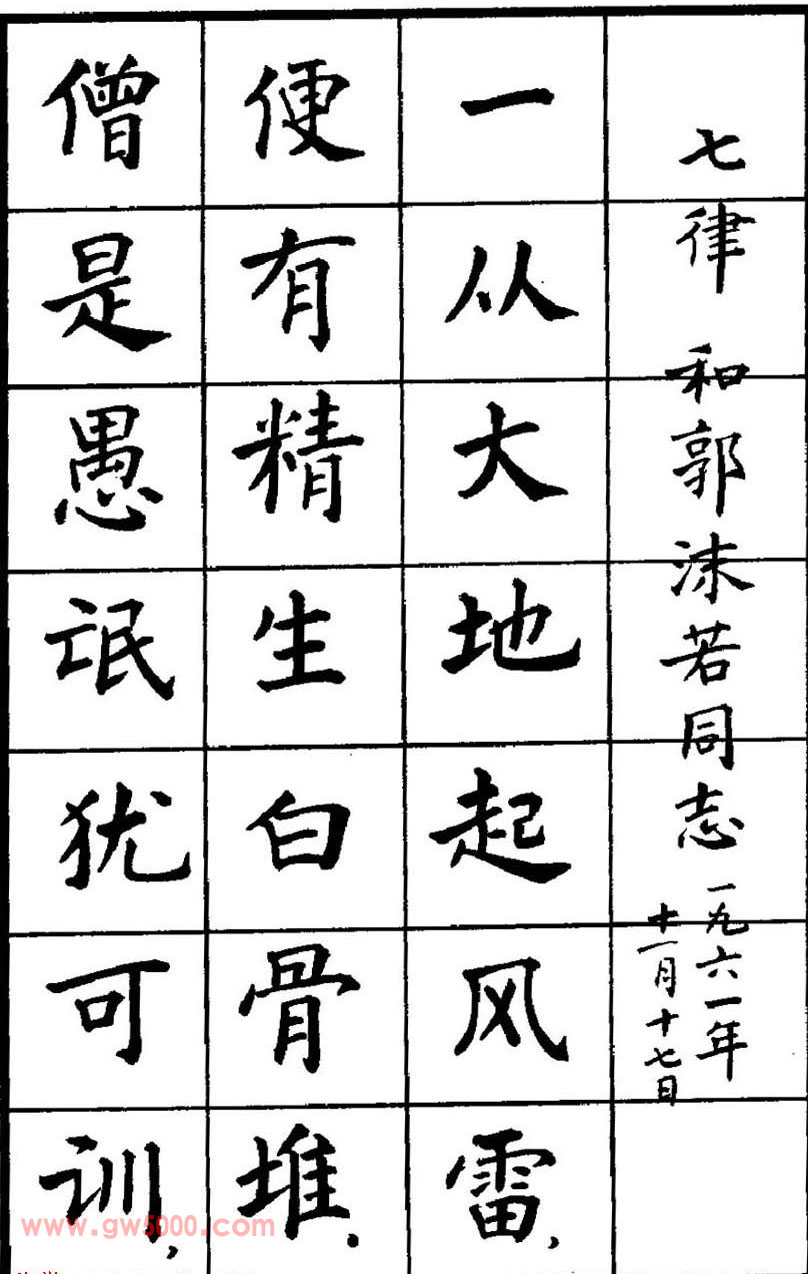 七律 和郭沫若同志 一九六一年
十一月十七日
一从大地起风雷，
便有精生白骨堆．
僧是愚氓犹可训，
www.gw5000.com